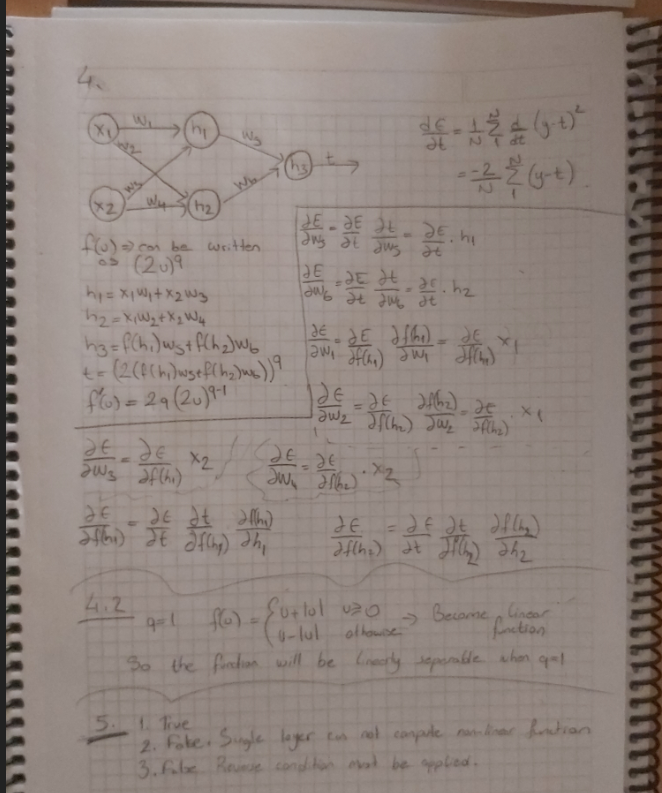 4.
x₁ w₁ h₁ w₅
w₂ h₃ t
w₃
x₂ w₄ h₂ w₆
dE/dt = 1/N Σ₁ᴺ d/dt (y-t)²
= -2/N Σ₁ᴺ (y-t)
f(u) => can be written
as (2u)^q
h₁ = x₁w₁+x₂w₃
h₂ = x₁w₂+x₂w₄
h₃ = f(h₁)w₅+f(h₂)w₆
t = (2(f(h₁)w₅+f(h₂)w₆))^q
f'(u) = 2q(2u)^(q-1)
∂E/∂w₅ = ∂E/∂t ∂t/∂w₅ = ∂E/∂t · h₁
∂E/∂w₆ = ∂E/∂t ∂t/∂w₆ = ∂E/∂t · h₂
∂E/∂w₁ = ∂E/∂f(h₁) ∂f(h₁)/∂w₁ = ∂E/∂f(h₁) x₁
∂E/∂w₂ = ∂E/∂f(h₂) ∂f(h₂)/∂w₂ = ∂E/∂f(h₂) · x₁
∂E/∂w₃ = ∂E/∂f(h₁) x₂ ∂E/∂w₄ = ∂E/∂f(h₂) · x₂
∂E/∂f(h₁) = ∂E/∂t ∂t/∂f(h₁) ∂f(h₁)/∂h₁ ∂E/∂f(h₂) = ∂E/∂t ∂t/∂f(h₂) ∂f(h₂)/∂h₂
4.2 q=1 f(u) = { u+|u| u≥0 → Become linear
u-|u| otherwise function
So the function will be linearly seperable when q=1
5. 1. True
2. False. Single layer can not compute non-linear function
3. False Reverse condition must be applied.